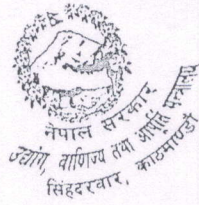 नेपाल सरकार
उद्योग, वाणिज्य तथा आपूर्ति मन्त्रालय
सिंहदरवार, काठमाण्डौ